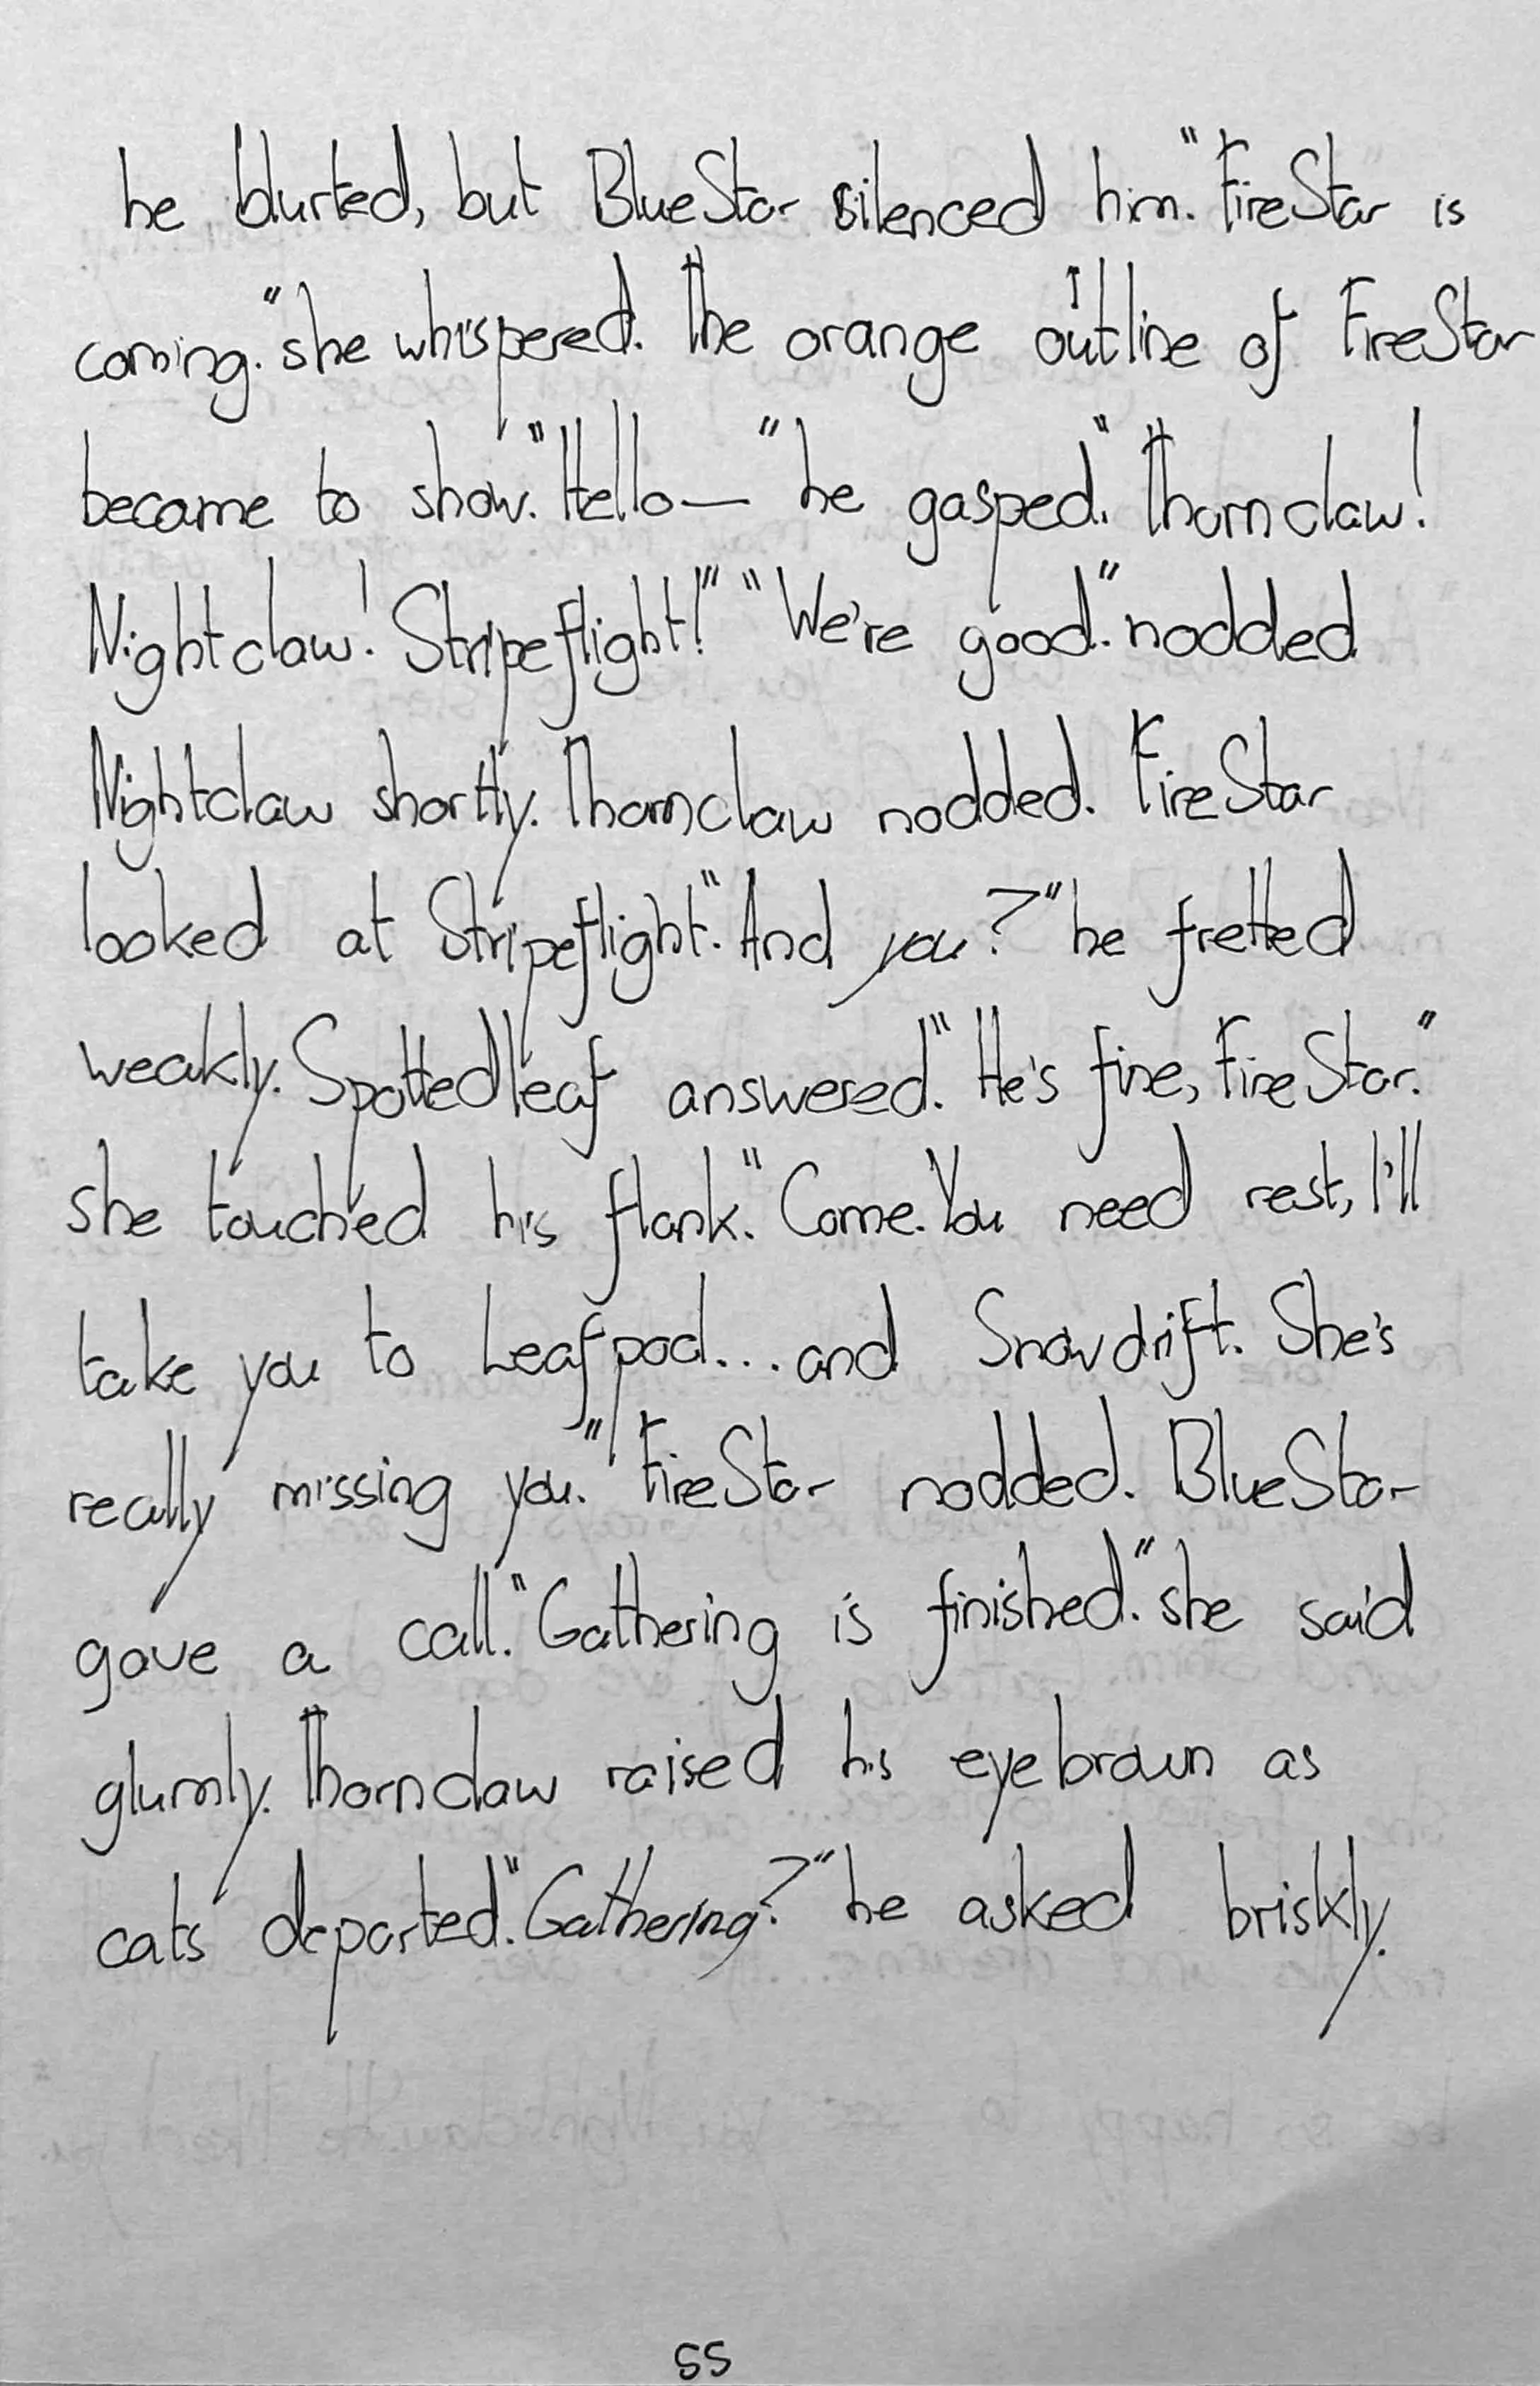 he blurted, but BlueStar silenced him. "FireStar is
coming." she whispered. The orange outline of FireStar
became to show. "Hello—" he gasped. "Thornclaw!
Nightclaw! Stripeflight!" "We're good." nodded
Nightclaw shortly. Thornclaw nodded. FireStar
looked at Stripeflight. "And you?" he fretted
weakly. Spottedleaf answered. "He's fine, FireStar."
she touched his flank. "Come. You need rest, I'll
take you to Leafpool... and Snowdrift. She's
really missing you." FireStar nodded. BlueStar
gave a call. "Gathering is finished." she said
glumly. Thornclaw raised his eyebrown as
cats departed. "Gathering?" he asked briskly.
55